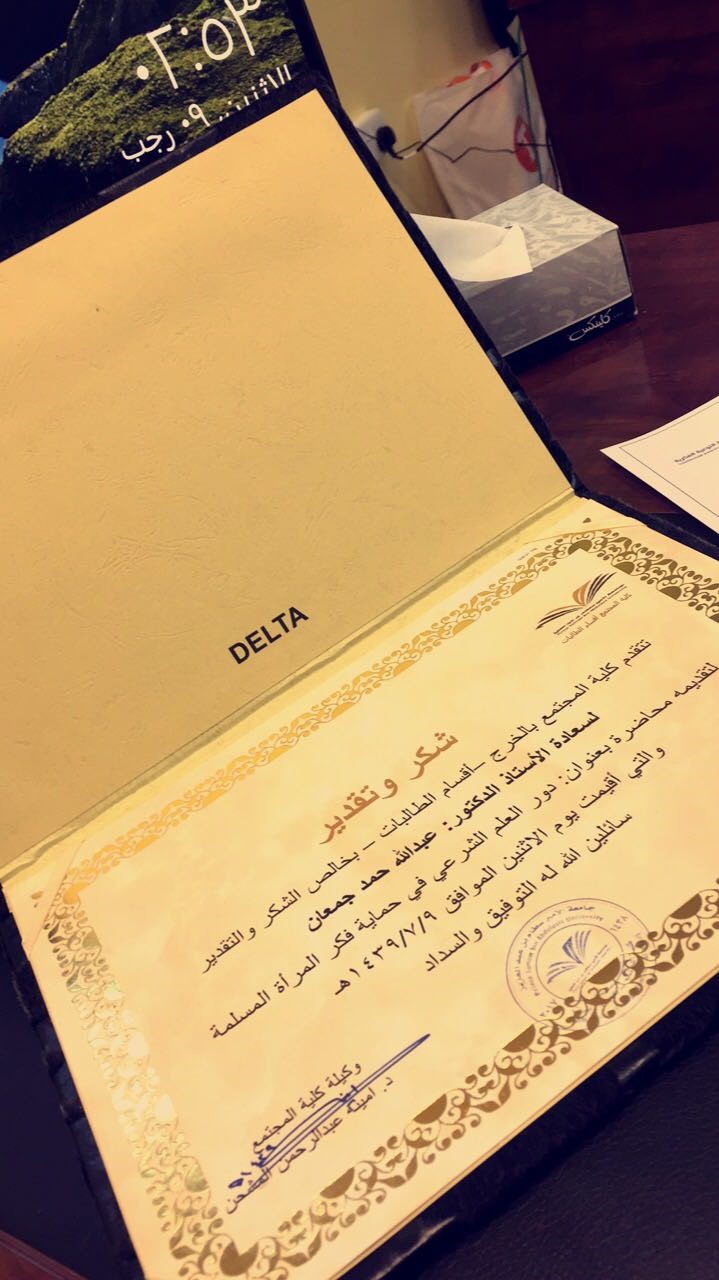 ٠٢:٥٣
الاثنين ٠٩ رجب
كلينكس
DELTA
كلية المجتمع أقسام الطالبات
شكر وتقدير
تتقدم كلية المجتمع بالخرج -أقسام الطالبات - بخالص الشكر والتقدير
لسعادة الأستاذ الدكتور: عبدالله حمد جمعان
لتقديمه محاضرة بعنوان: دور العلم الشرعي في حماية فكر المرأة المسلمة
والتي أقيمت يوم الاثنين الموافق ١٤٣٩/٧/٩هـ
سائلين الله له التوفيق والسداد
جامعة الأمير سطام بن عبدالعزيز
Prince Sattam Bin Abdulaziz University
وكيلة كلية المجتمع
د. امينة عبدالرحمن